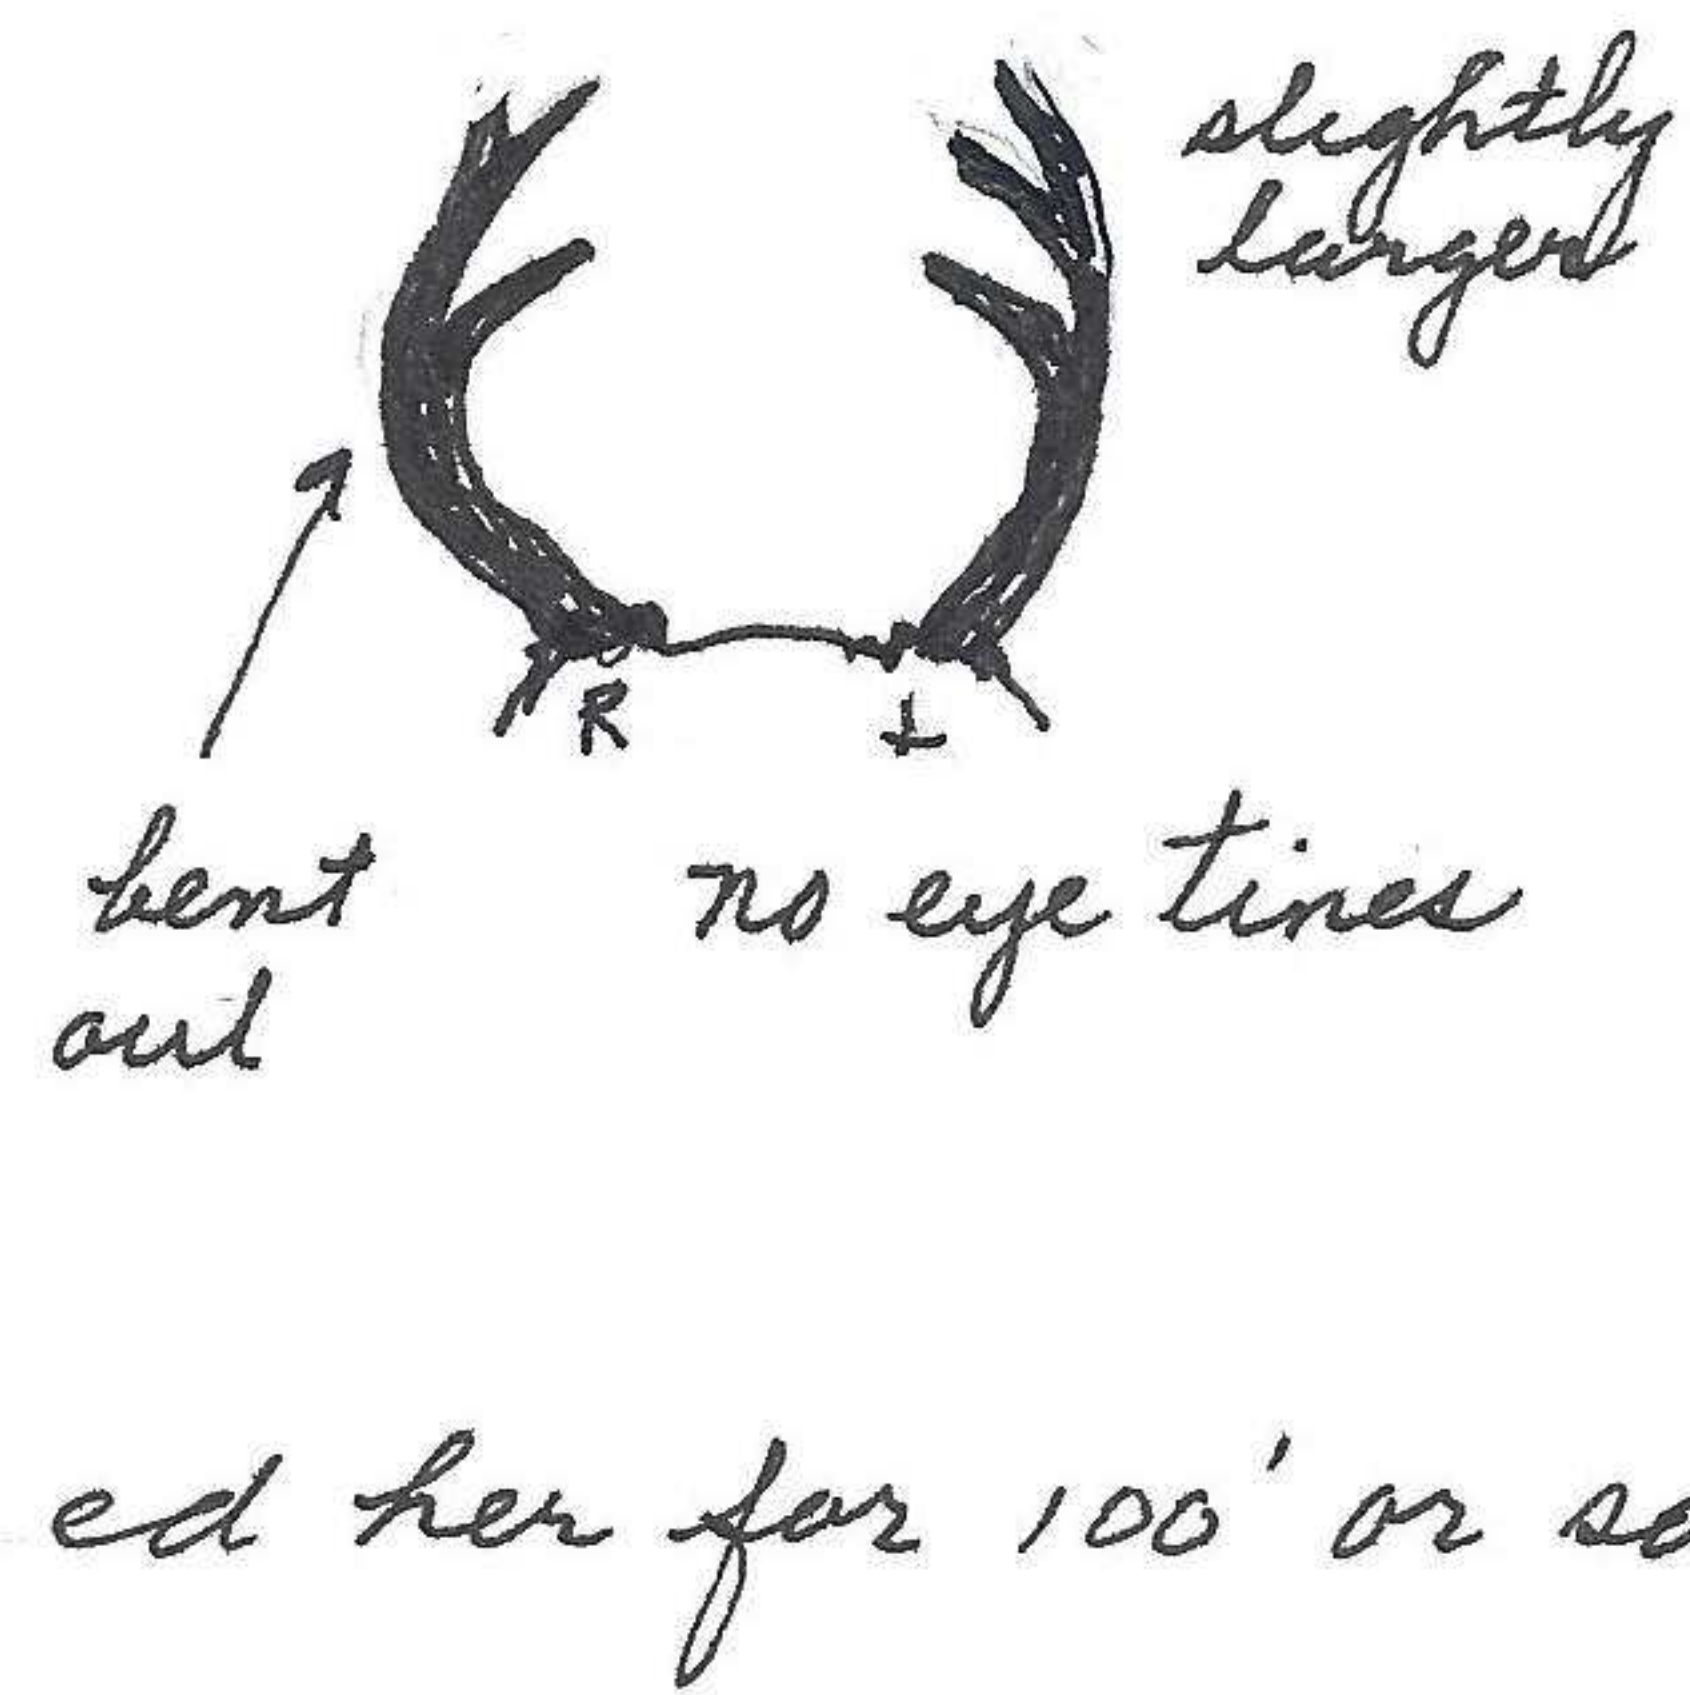 slightly
larger
R L
bent no eye tines
out
ed her for 100' or so